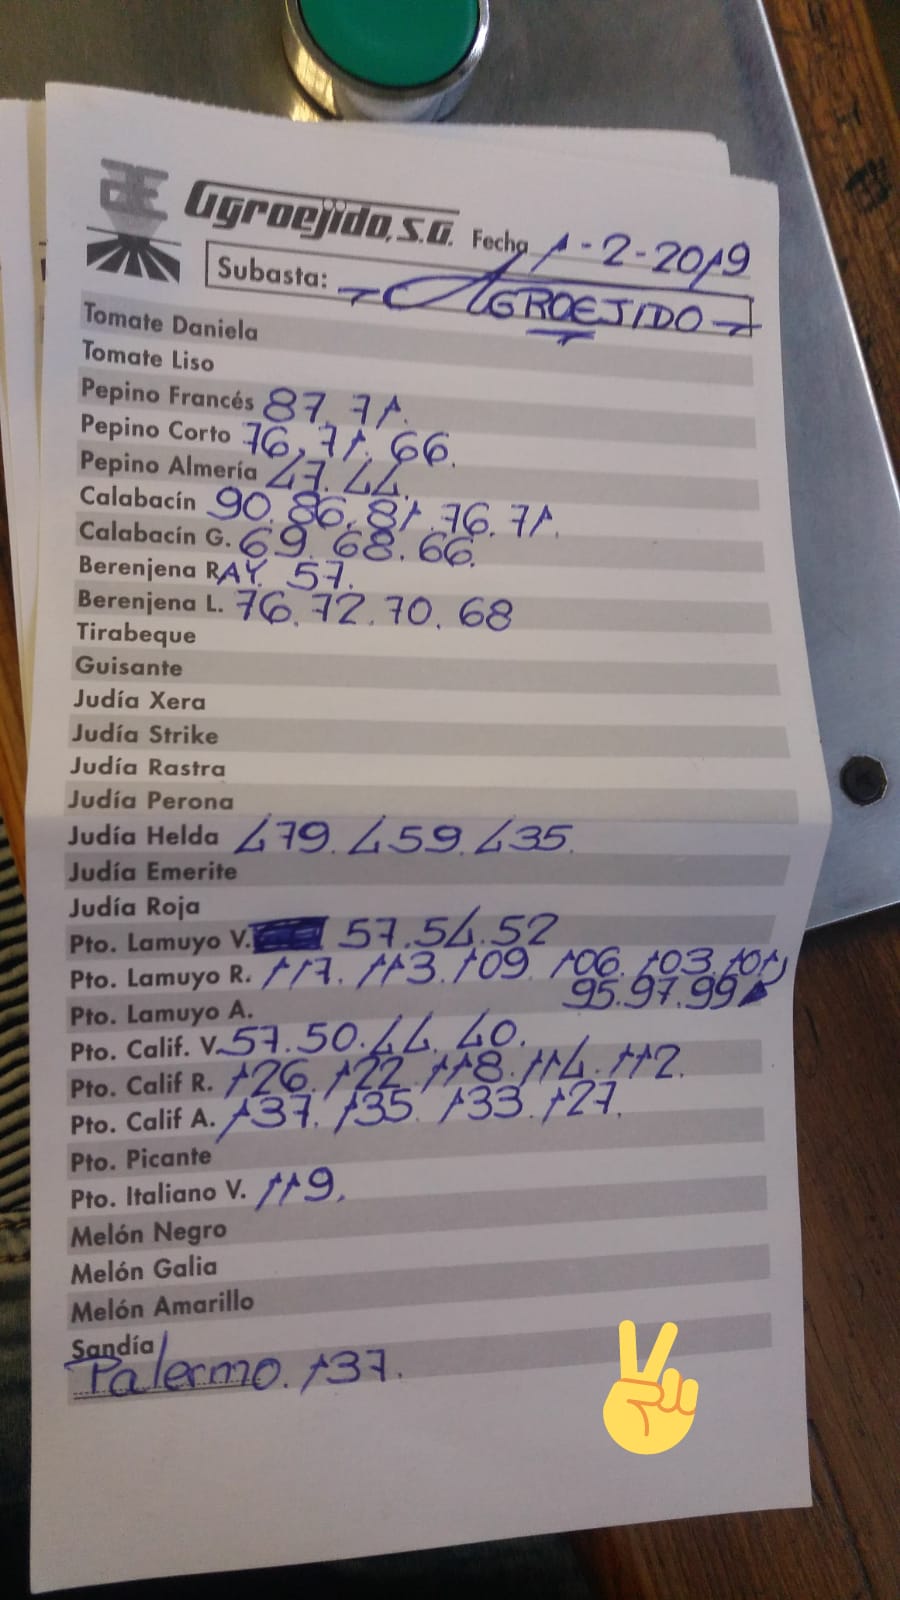 Agroejido, S.A. Fecha 1-2-2019
Subasta: AGROEJIDO
Tomate Daniela
Tomate Liso
Pepino Francés 87. 71.
Pepino Corto 76. 71. 66.
Pepino Almería 47. 44.
Calabacín 90. 86. 81. 76. 71.
Calabacín G. 69. 68. 66.
Berenjena RAY. 57.
Berenjena L. 76. 72. 70. 68
Tirabeque
Guisante
Judía Xera
Judía Strike
Judía Rastra
Judía Perona
Judía Helda 479. 459. 435.
Judía Emerite
Judía Roja
Pto. Lamuyo V. 57. 54. 52
Pto. Lamuyo R. 117. 113. 109. 106. 103. 101
95. 97. 99
Pto. Lamuyo A.
Pto. Calif. V. 57. 50. 44. 40.
Pto. Calif R. 126. 122. 118. 114. 112.
Pto. Calif A. 137. 135. 133. 127.
Pto. Picante
Pto. Italiano V. 119.
Melón Negro
Melón Galia
Melón Amarillo
Sandía
Palermo. 137.